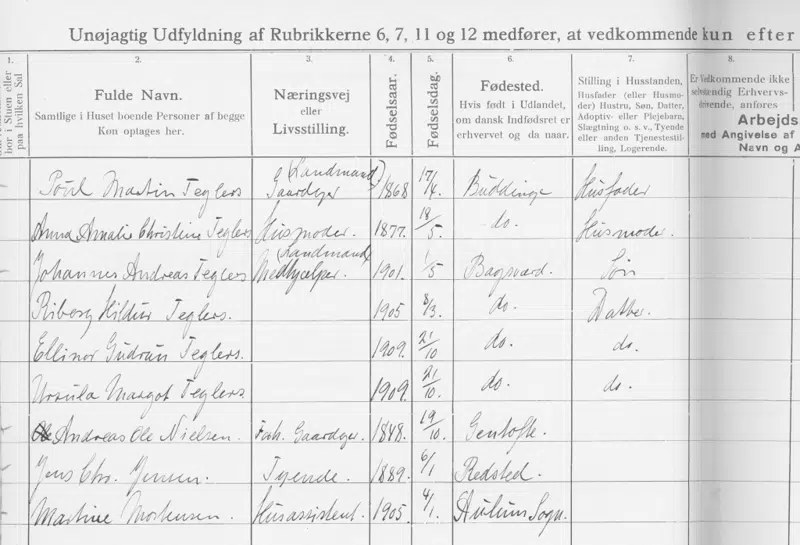 Unøjagtig Udfyldning af Rubrikkerne 6, 7, 11 og 12 medfører, at vedkommende kun efter
1. 2. 3. 4. 5. 6. 7. 8.
bor i Stuen eller
paa hvilken Sal
Fulde Navn.
Samtlige i Huset boende Personer af begge
Køn optages her.
Næringsvej
eller
Livsstilling.
Fødselsaar.
Fødselsdag.
Fødested.
Hvis født i Udlandet,
om dansk Indfødsret er
erhvervet og da naar.
Stilling i Husstanden,
Husfader (eller Husmo-
der) Hustru, Søn, Datter,
Adoptiv- eller Plejebarn,
Slægtning o. s. v., Tyende
eller anden Tjenestestil-
ling, Logerende.
Er Vedkommende ikke
selvstændig Erhvervs-
drivende, anføres
Arbejds
med Angivelse af
Navn og A
Poul Martin Teglers Gaardejer (Landmand) 1868 17/4. Buddinge Husfader
Anna Amalie Christine Teglers Husmoder. 1877. 18/5. do. Husmoder.
Johannes Andreas Teglers Medhjælper. (Landmand) 1901. 1/5 Bagsværd. Søn
Riborg Hildur Teglers. 1905 8/3. do. Datter.
Ellinor Gudrun Teglers. 1909. 21/10 do. do.
Ursula Margot Teglers 1909. 21/10. do. do.
Andreas Ole Nielsen. Forh. Gaardejer. 1848. 19/10. Gentofte.
Jens Chr. Jensen. Tyende. 1889. 6/1 Redsted.
Martine Mortensen. Husassistent. 1905. 4/1. Aulum Sogn.